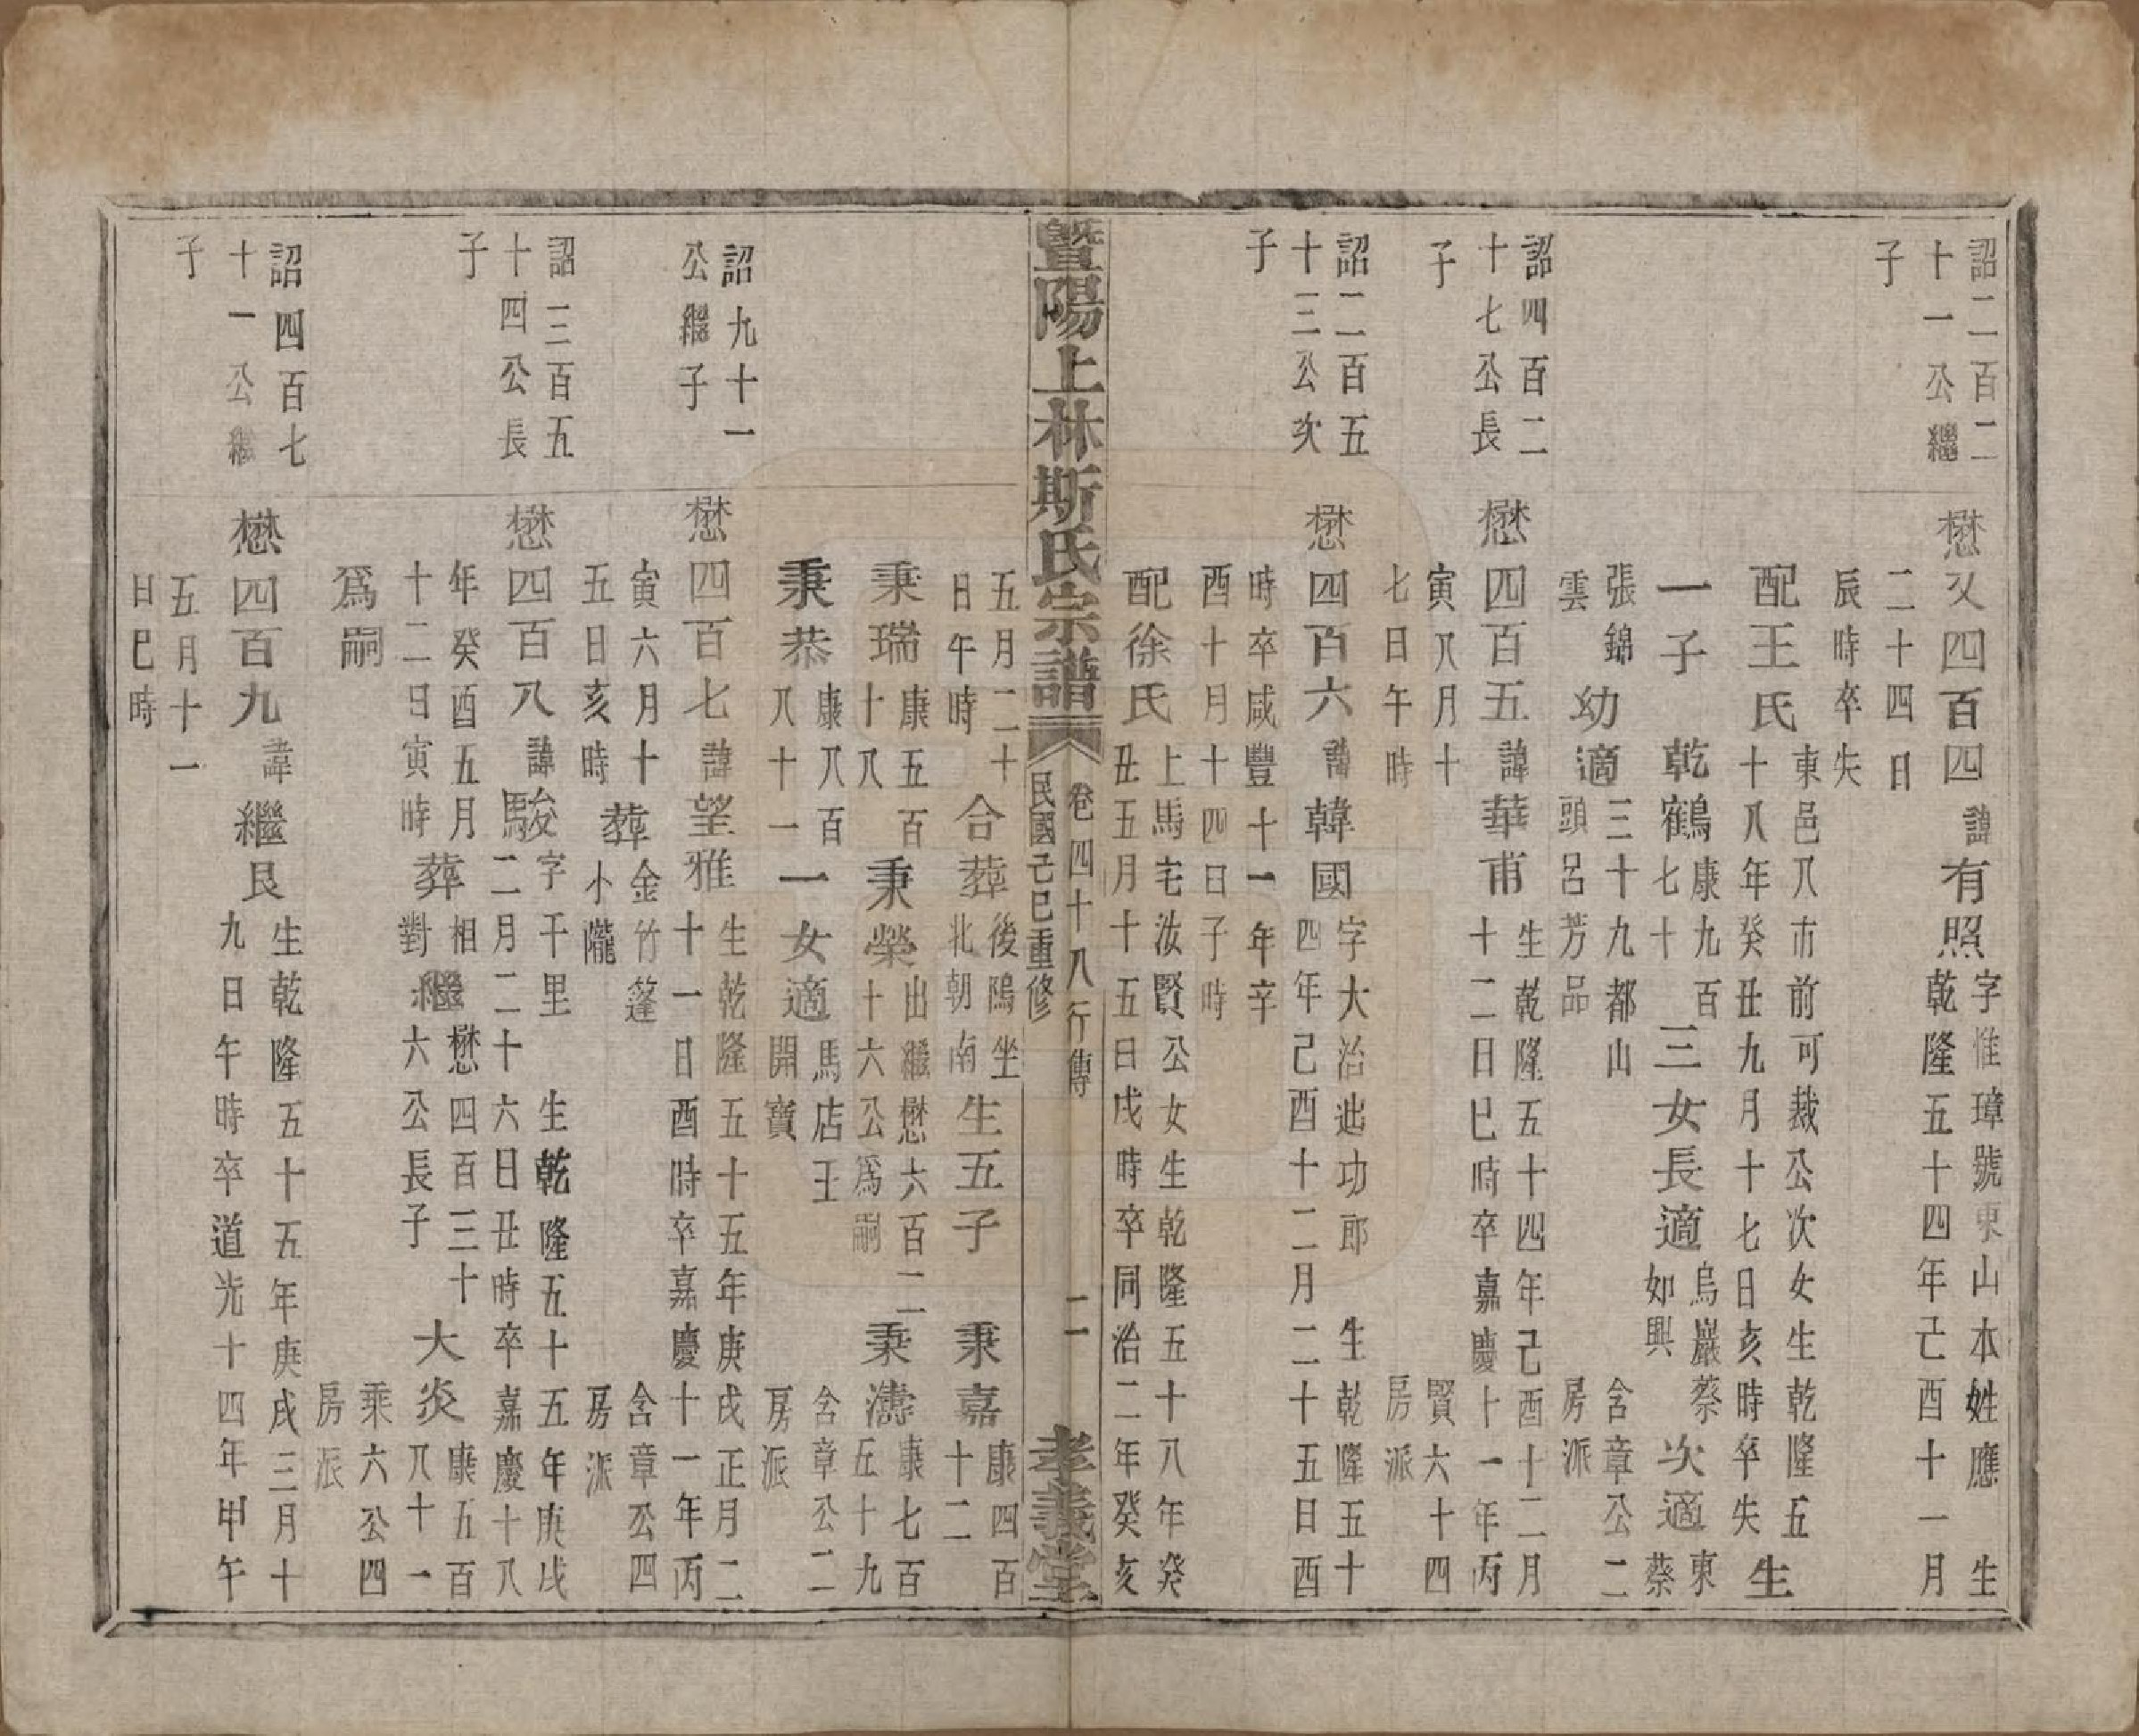 詔二百二
十一公繼
子
懋又四百四諱有照
字惟璋號東山本姓應　生
乾隆五十四年己酉十一月
二十四日
辰時卒失
配王氏
東邑八市前可裁公次女生乾隆五
十八年癸丑九月十七日亥時卒失
生
一子　乾鶴
康九百
七十
三女長適
烏巖蔡
如興
次適
東
蔡
張錦
雲
幼適
三十九都山
頭呂芳品
含章公二
房派
詔四百二
十七公長
子
懋四百五諱華甫
生乾隆五十四年己酉十二月
十二日巳時卒嘉慶十一年丙
寅八月十
七日午時
賢六十四
房派
詔二百五
十三公次
子
懋四百六諱韓國
字大治迆功郎　生乾隆五十
四年己酉十二月二十五日酉
時卒咸豐十一年辛
酉十月十四日子時
配徐氏
上馬宅汝賢公女生乾隆五十八年癸
丑五月十五日戌時卒同治二年癸亥
暨陽上林斯氏宗譜
卷四十八行傳
民國己巳重修
二
孝義堂
五月二十
日午時
合葬
後隝坐
北朝南
生五子　秉嘉
康四百
十二
秉瑞
康五百
十八
秉榮
出繼懋六百二
十六公爲嗣
秉濤
康七百
五十九
秉恭
康八百
八十一
一女適
馬店王
開寶
含章公二
房派
詔九十一
公繼子
懋四百七諱望雅
生乾隆五十五年庚戌正月二
十一日酉時卒嘉慶十一年丙
寅六月十
五日亥時
葬
金竹篷
小隴
含章公四
房派
詔三百五
十四公長
子
懋四百八諱駿
字干里　生乾隆五十五年庚戌
二月二十六日丑時卒嘉慶十八
年癸酉五月
十二日寅時
葬
相
對
繼
懋四百三十
六公長子
大炎
康五百
八十一
爲嗣
乘六公四
房派
詔四百七
十一公繼
子
懋四百九諱繼艮
生乾隆五十五年庚戌三月十
九日午時卒道光十四年甲午
五月十一
日巳時